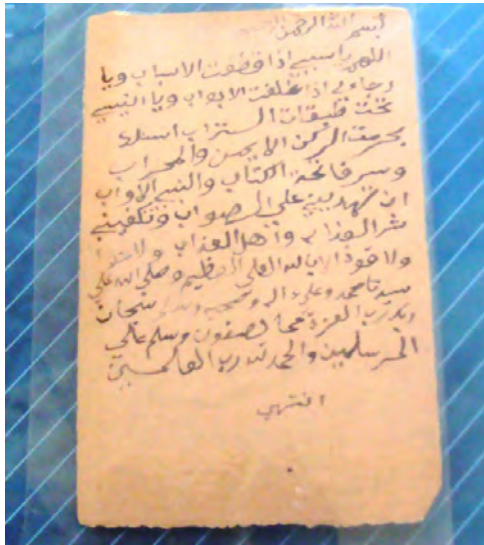 بسم الله الرحمن الرحيم
اللهم يا سببي اذا قطعت الاسباب ويا
رجاءي اذا غلقت الابواب ويا انيسي
تحت طبقات التراب اسئلك
بحرمت الركن الايمن والمحراب
وسر فاتحة الكتاب والنبي الاواب
ان تهديني على الصواب وتكفيني
شر العذاب واهل العذاب ولا
ولا قوة الا بالله العلي العظيم وصلى الله على
سيدنا محمد وعلى اله وصحبه وسلم سبحان
ربك رب العزة عما يصفون وسلم على
المرسلين والحمد لله رب العالمين
انتهى